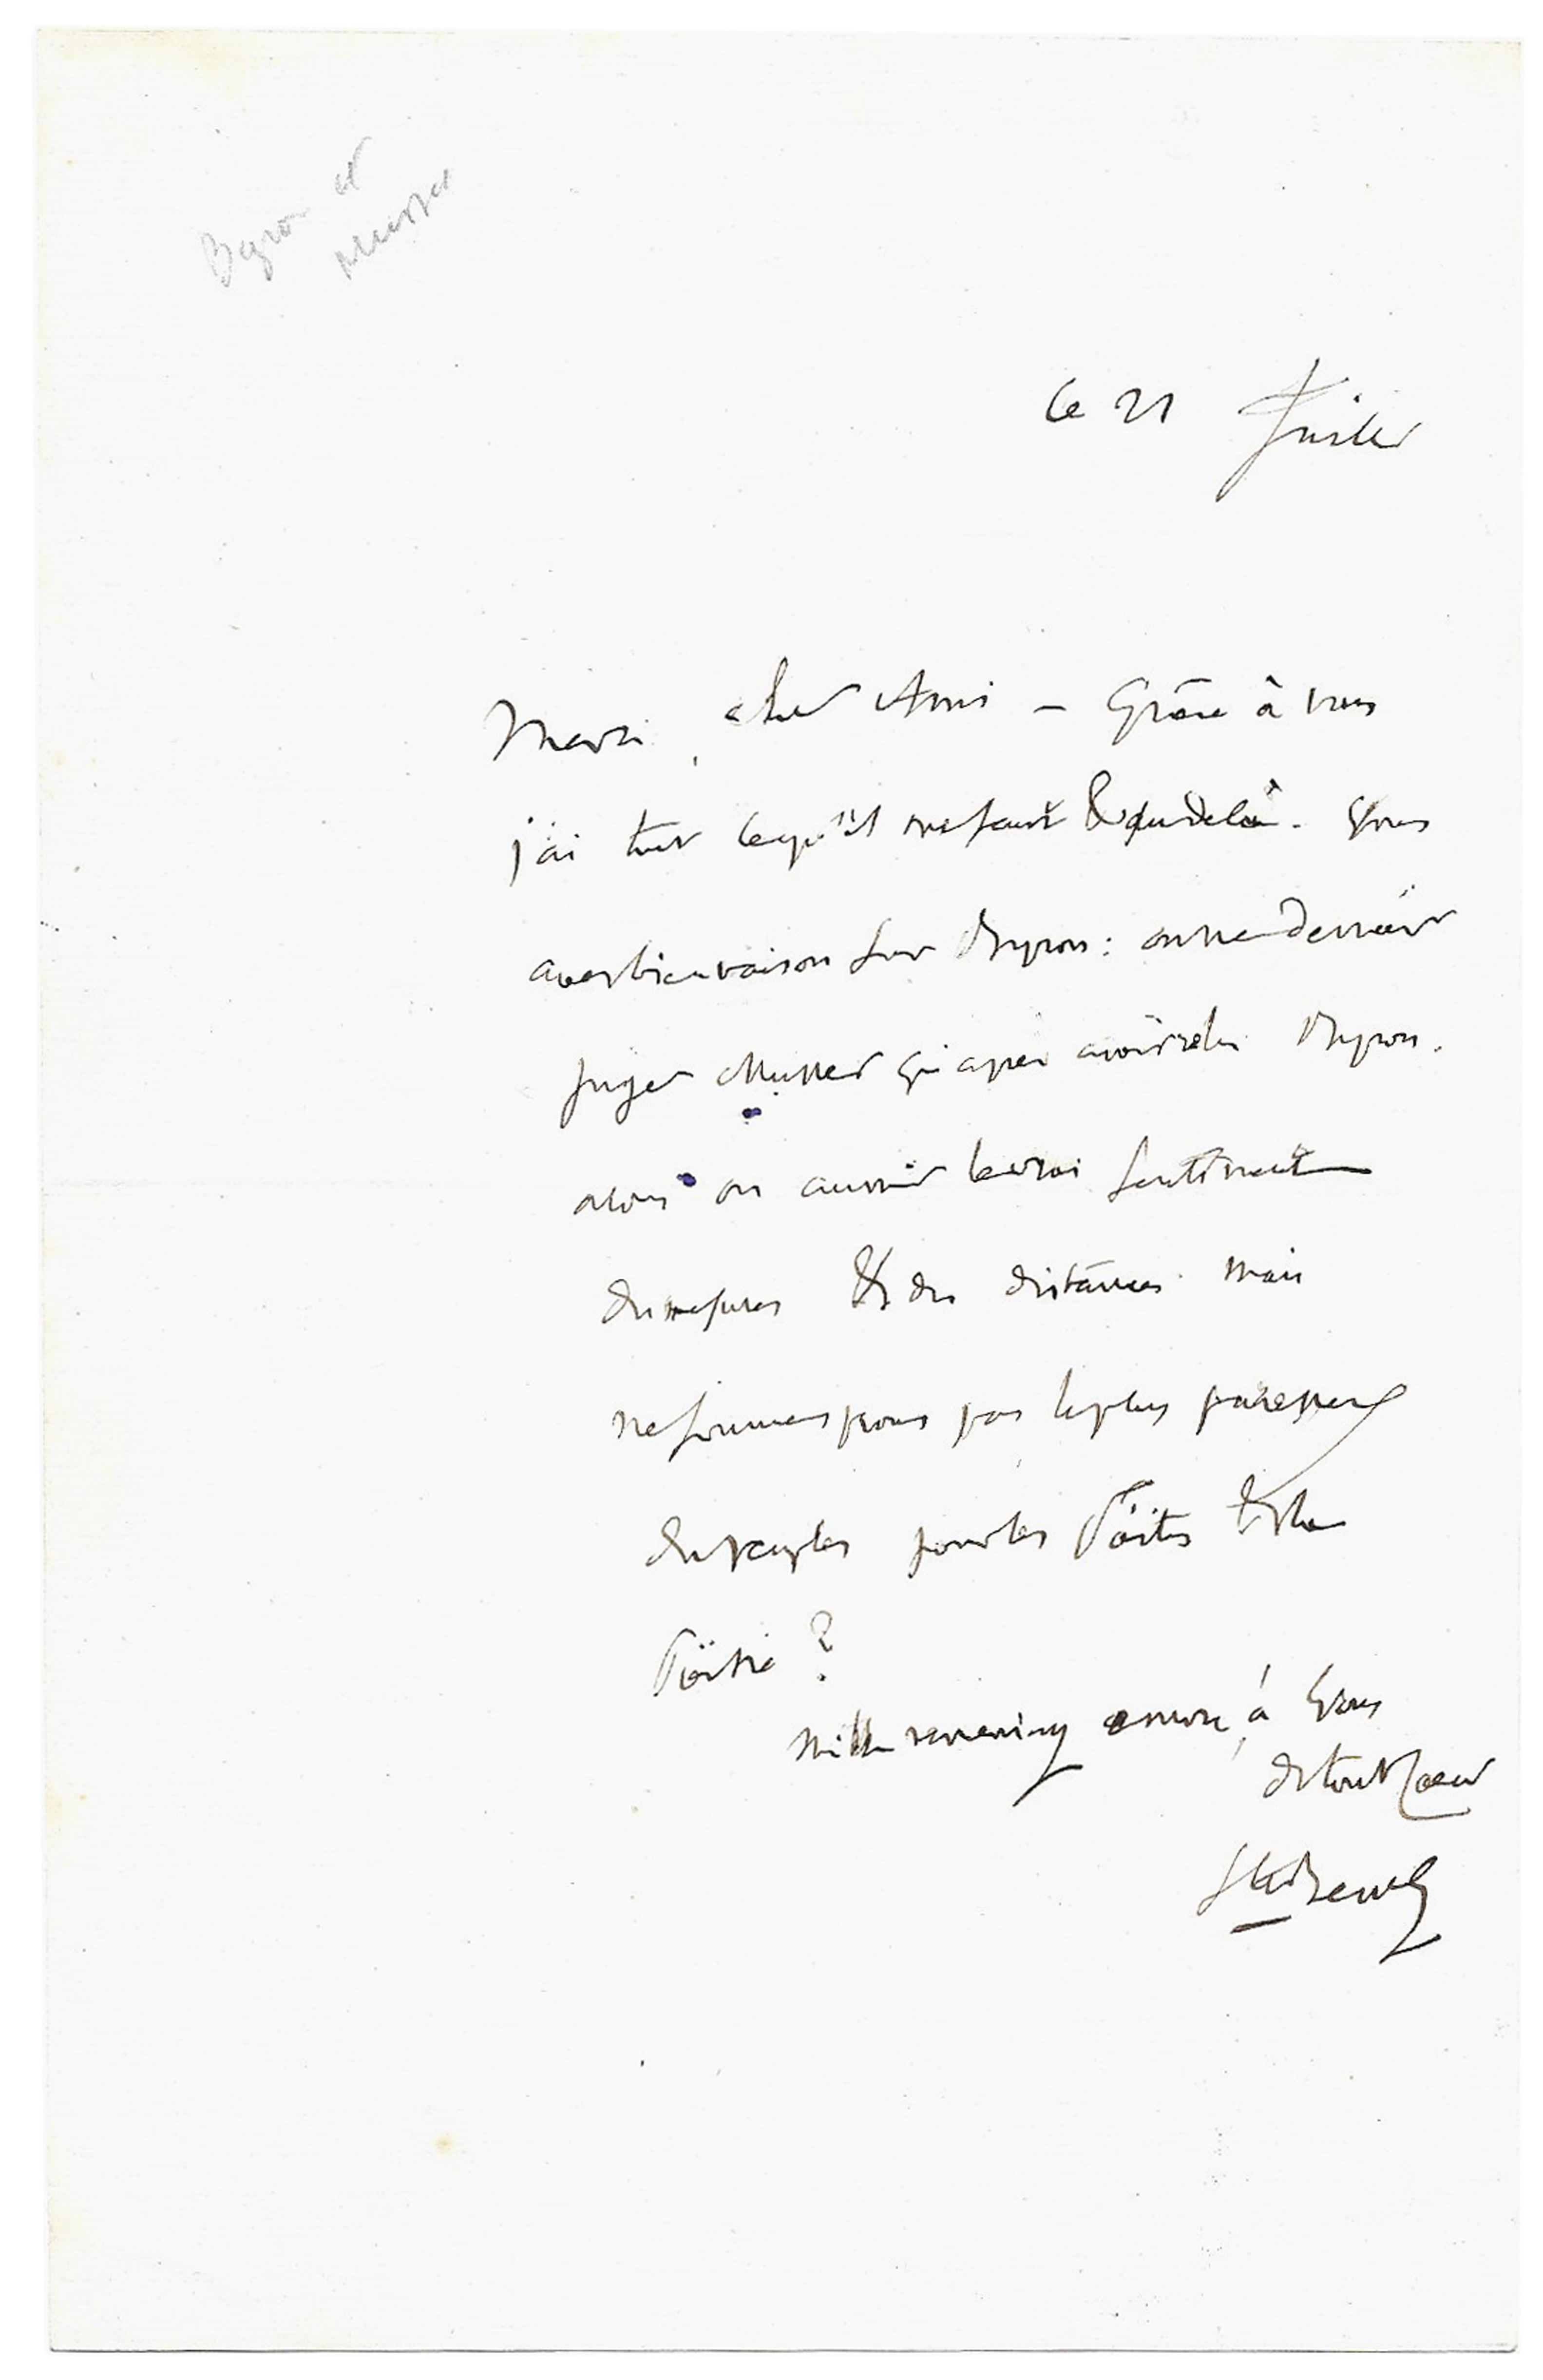 Byron et
Musset
Ce 21 Juillet
Merci, cher Ami – Grâce à vous
j'ai tout ce qu'il me faut & au delà. Vous
avez bien raison sur Byron : on ne devrait
juger Musset qu'après avoir relu Byron.
alors on aurait le vrai sentiment
des mesures & des distances. Mais
ne sommes nous pas le plus paresseux
des peuples pour les Poëtes & la
Poësie ?
Mille remerciemens encore, à Vous
de tout Coeur
Ste Beuve